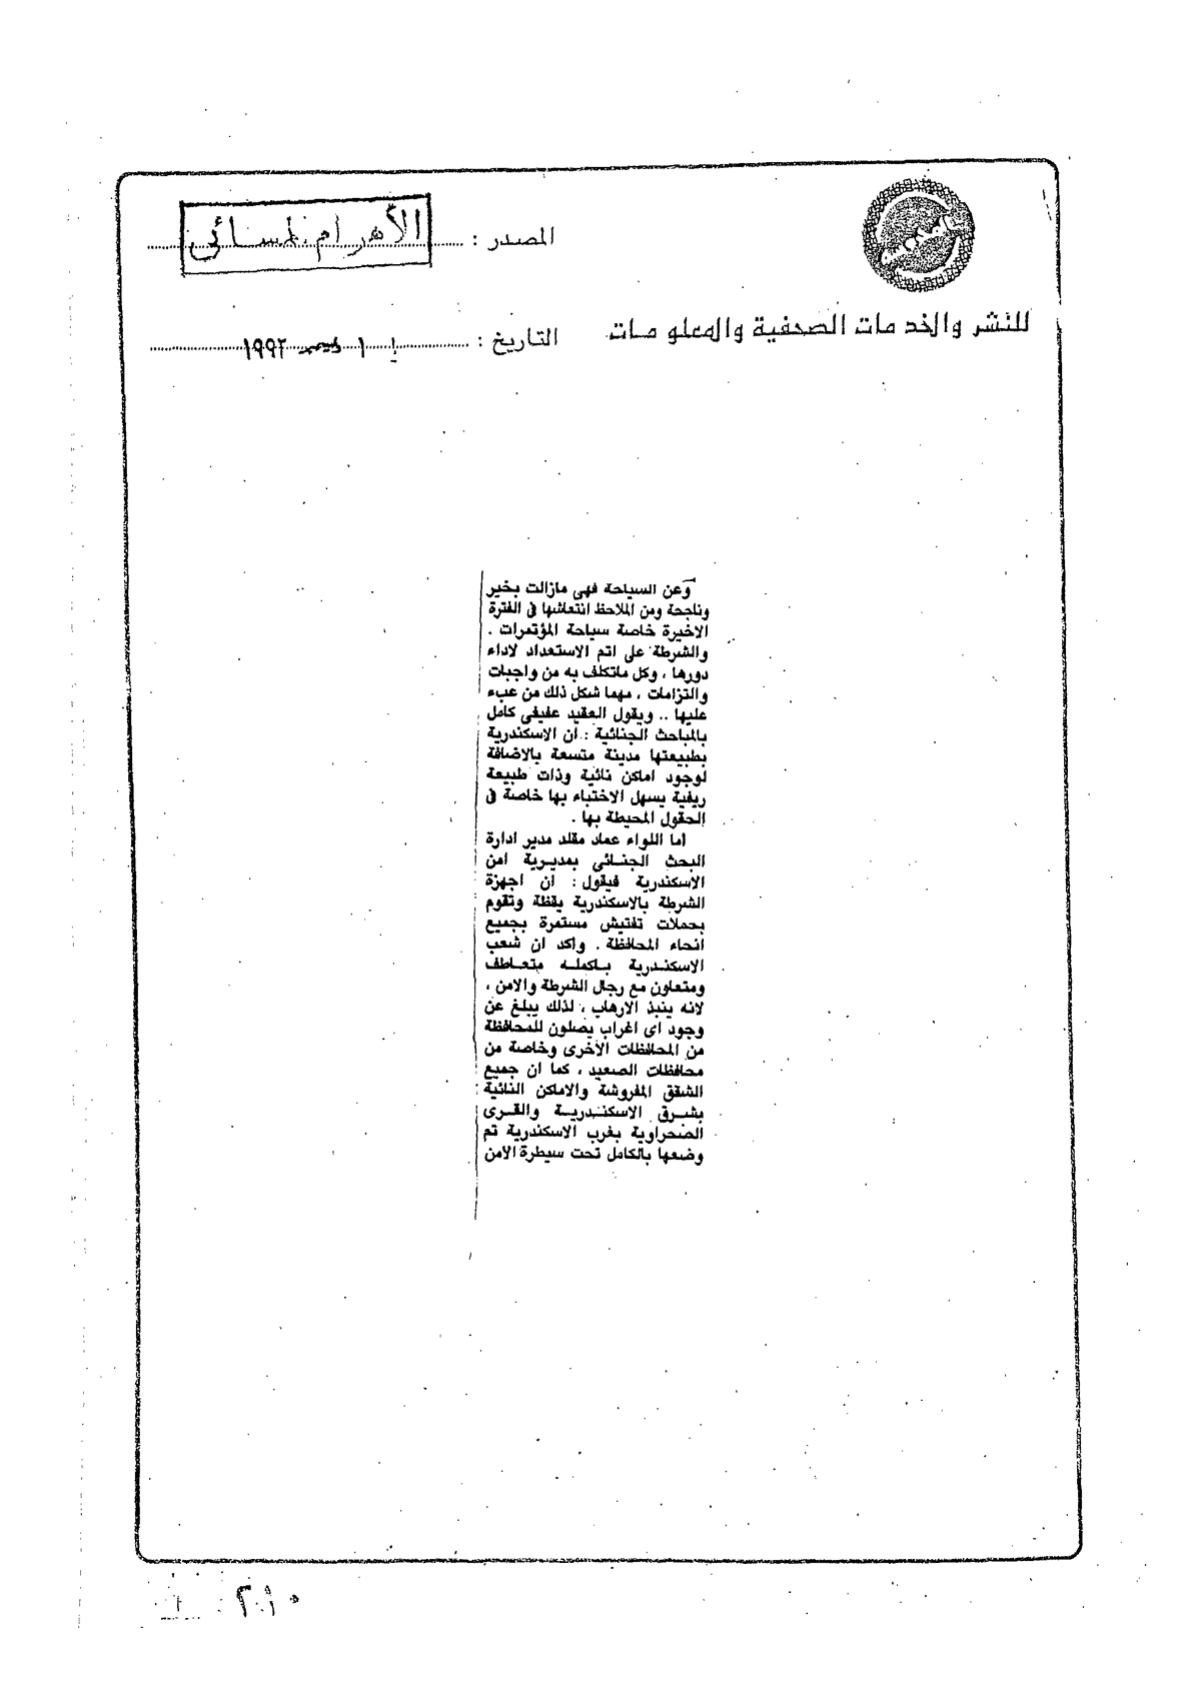 المصدر : الأهرام المسائى
للنشر والخدمات الصحفية والمعلومات
التاريخ : ١ ديسمبر ١٩٩٢
وعن السياحة فهى مازالت بخير
وناجحة ومن الملاحظ انتعاشها فى الفترة
الاخيرة خاصة سياحة المؤتمرات .
والشرطة على اتم الاستعداد لاداء
دورها ، وكل ماتكلف به من واجبات
والتزامات ، مهما شكل ذلك من عبء
عليها .. ويقول العقيد عفيفى كامل
بالمباحث الجنائية : ان الاسكندرية
بطبيعتها مدينة متسعة بالاضافة
لوجود اماكن نائية وذات طبيعة
ريفية يسهل الاختباء بها خاصة فى
الحقول المحيطة بها .
اما اللواء عماد مقلد مدير ادارة
البحث الجنائى بمديرية امن
الاسكندرية فيقول : ان اجهزة
الشرطة بالاسكندرية يقظة وتقوم
بحملات تفتيش مستمرة بجميع
انحاء المحافظة . واكد ان شعب
الاسكندرية باكمله متعاطف
ومتعاون مع رجال الشرطة والامن ،
لانه ينبذ الارهاب ، لذلك يبلغ عن
وجود اى اغراب يصلون للمحافظة
من المحافظات الأخرى وخاصة من
محافظات الصعيد ، كما ان جميع
الشقق المفروشة والاماكن النائية
بشرق الاسكندرية والقرى
الصحراوية بغرب الاسكندرية تم
وضعها بالكامل تحت سيطرة الامن